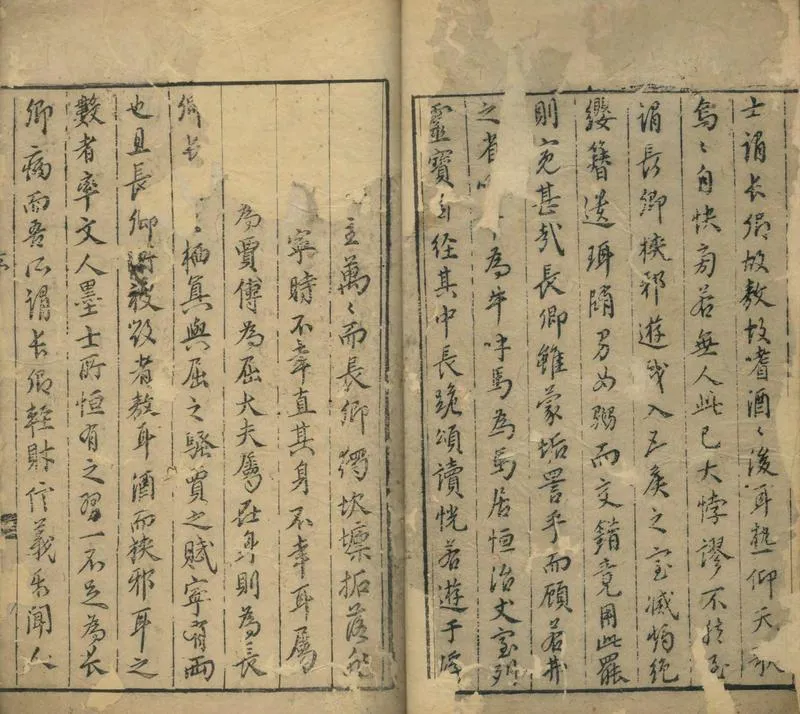 士謂长卿故敖故嗜酒〻後耳热仰天歌
烏〻自快旁若無人此已大悖謬不然至
謂長卿挾邪遊或入五侯之室滅燭絶
纓簪遺珥隋男女 而交錯竟用此罷
則寃甚哉長卿雖蒙垢詈乎而顧若井
之 〻為牛呼馬為馬居恒治丈室列
靈寳自经其中長跪頌讀恍若遊于
主萬〻而長卿獨坎壈拓落
寧時不幸直其身不幸耳屬
為賈傅為屈大夫屬在身則為長
长 〻栖真與屈之騷賈之賦寧有两
也且長卿所被毁者敖耳酒而挾邪耳之
數者率文人墨士所恒有之習一不足為长
卿病而吾所謂长卿軽財信義 聞人